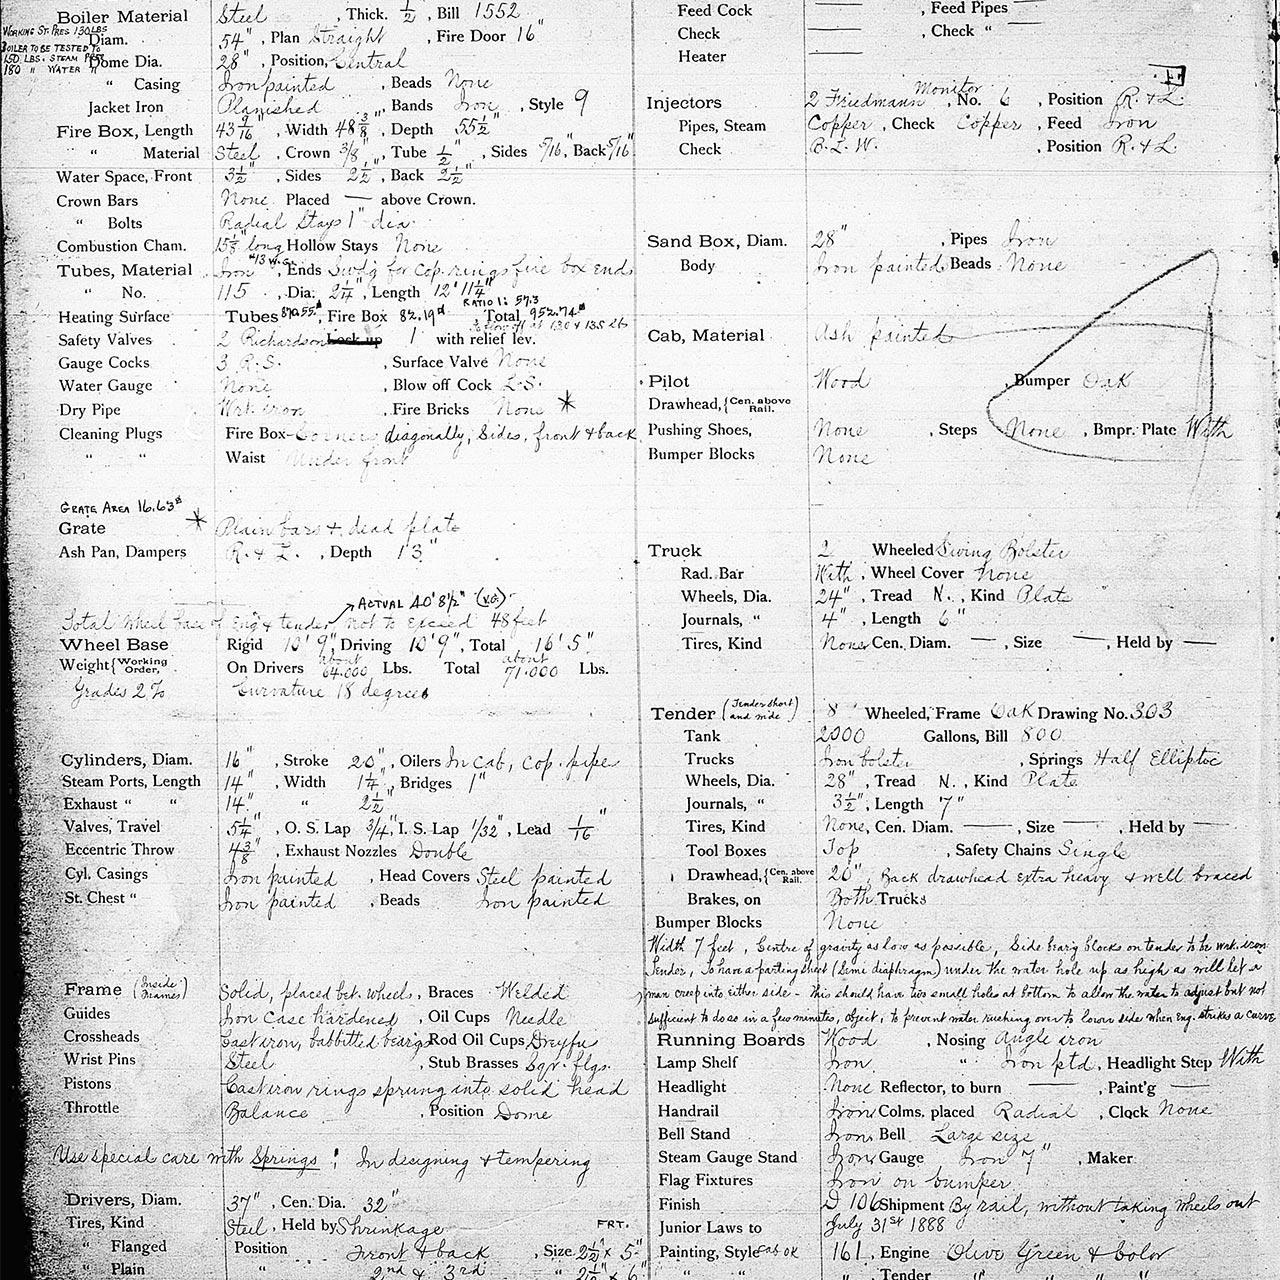 Boiler Material Steel, Thick. 1/2, Bill 1552
WORKING ST. PRES 130 LBS
BOILER TO BE TESTED TO
150 LBS. STEAM PRES
180 " WATER "
Diam. 54", Plan Straight, Fire Door 16"
Dome Dia. 28", Position, Central
" Casing Iron painted, Beads None
Jacket Iron Planished, Bands Iron, Style 9
Fire Box, Length 43 9/16", Width 48 3/8", Depth 55 1/2"
" Material Steel, Crown 3/8", Tube 1/2", Sides 5/16", Back 5/16"
Water Space, Front 3 1/2", Sides 2 1/2", Back 2 1/2"
Crown Bars None Placed — above Crown.
" Bolts Radial Stays 1" dia
Combustion Cham. 15 5/8" long, Hollow Stays None
Tubes, Material Iron #13 W.G., Ends Swd'g for cop. rings fire box end
" No. 115, Dia. 2 1/4", Length 12' 11 1/4"
RATIO 1:57.3
Heating Surface Tubes 870.55, Fire Box 82.19, Total 952.74
to blow off at 130 & 135 lbs
Safety Valves 2 Richardson Lock up 1 with relief lev.
Gauge Cocks 3 R.S., Surface Valve None
Water Gauge None, Blow off Cock L.S.
Dry Pipe Wrt. iron, Fire Bricks None *
Cleaning Plugs Fire Box-Corners diagonally, Sides, front & back
" " Waist Under front
GRATE AREA 16.63
Grate * Plain bars & dead plate
Ash Pan, Dampers R. & L., Depth 1'3"
ACTUAL 40' 8 1/2" (V.G.)
Total Wheel base of Eng & tender, not to exceed 48 feet
Wheel Base Rigid 10' 9", Driving 10' 9", Total 16' 5"
Weight {Working Order, On Drivers about 64.000 Lbs. Total about 71.000 Lbs.
Grades 2% Curvature 18 degrees
Cylinders, Diam. 16", Stroke 20", Oilers In cab, cop. pipe
Steam Ports, Length 14", Width 1 1/4", Bridges 1"
Exhaust " " 14." " 2 1/2"
Valves, Travel 5 1/4", O. S. Lap 3/4", I. S. Lap 1/32", Lead 1/16"
Eccentric Throw 4 3/8", Exhaust Nozzles Double
Cyl. Casings Iron painted, Head Covers Steel painted
St. Chest " Iron painted, Beads Iron painted
Frame (Inside Frames) Solid, placed bet. wheels, Braces Welded
Guides Iron case hardened, Oil Cups Needle
Crossheads Cast iron, babbitted bearings Rod Oil Cups, Dreyfus
Wrist Pins Steel, Stub Brasses Sqr. flgs.
Pistons Cast iron rings sprung into solid head
Throttle Balance, Position Dome
Use special care with Springs! In designing & tempering
Drivers, Diam. 37", Cen. Dia. 32"
Tires, Kind Steel, Held by Shrinkage FRT.
" Flanged Position Front & back, Size 2 1/2" x 5"
" Plain " 2nd & 3rd " 2 1/2" x 6"
Feed Cock —, Feed Pipes —
Check —, Check " —
Heater —
Injectors 2 Friedmann Monitor, No. 6, Position R. & L.
Pipes, Steam Copper, Check Copper, Feed Iron
Check B. L. W., Position R. & L.
Sand Box, Diam. 28", Pipes Iron
Body Iron painted Beads None
Cab, Material Ash painted
Pilot Wood, Bumper Oak
Drawhead, {Cen. above Rail.
Pushing Shoes, None, Steps None, Bmpr. Plate With
Bumper Blocks None
Truck 2 Wheeled Swing Bolster
Rad. Bar With, Wheel Cover None
Wheels, Dia. 24", Tread N., Kind Plate
Journals, " 4", Length 6"
Tires, Kind None Cen. Diam. —, Size —, Held by —
Tender (Tender short and wide) 8 Wheeled, Frame Oak Drawing No. 303
Tank 2000 Gallons, Bill 800
Trucks Iron bolster, Springs Half Elliptic
Wheels, Dia. 28", Tread N., Kind Plate
Journals, " 3 1/2", Length 7"
Tires, Kind None, Cen. Diam. —, Size —, Held by —
Tool Boxes Top, Safety Chains Single
Drawhead, {Cen. above Rail. 20", Back drawhead extra heavy & well braced
Brakes, on Both Trucks
Bumper Blocks None
Width 7 feet, Centre of gravity as low as possible, Side bear'g blocks on tender to be wrt. iron
Tender, To have a parting sheet (Semi diaphragm) under the water hole up as high as will let a
man creep into either side - This should have two small holes at bottom to allow the water to adjust but not
sufficient to do so in a few minutes, Object, to prevent water rushing over to lower side when eng. strikes a curve
Running Boards Wood, Nosing Angle iron
Lamp Shelf Iron " Iron ptd, Headlight Step With
Headlight None Reflector, to burn —, Paint'g —
Handrail Iron, Colms. placed Radial, Clock None
Bell Stand Iron, Bell Large size
Steam Gauge Stand Iron, Gauge Iron 7", Maker
Flag Fixtures Iron on bumper
Finish D 106 Shipment By rail, without taking wheels out
Junior Laws to July 31st 1888
Painting, Style Cab OK 161, Engine Olive Green & Color
" " " Tender " " "